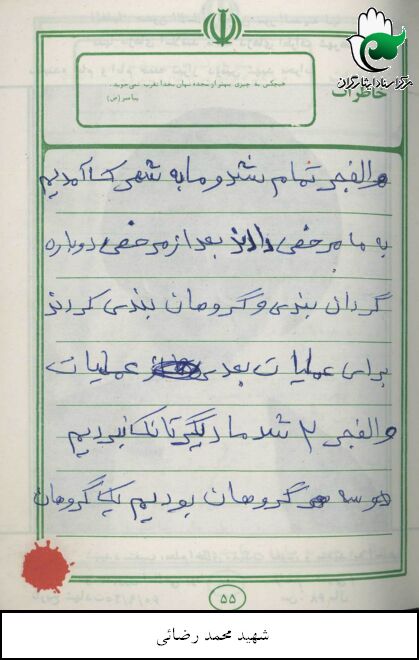 مرکز اسناد ایثارگران
خاطرات
هیچکس به چیزی بهتر از سجده نهان بخدا تقرب نمی‌جوید.
پیامبر (ص)
والفجر تمام شد و ما به شهرک آمدیم
به ما مرخصی دادند بعد از مرخصی دوباره
گردان بندی و گروهان بندی کردند
برای عملیات بعدی عملیات
والفجر ۲ شد ما دیگر تانک نبردیم
هر سه گروهان بودیم یک گروهان
۵۵
شهید محمد رضائی